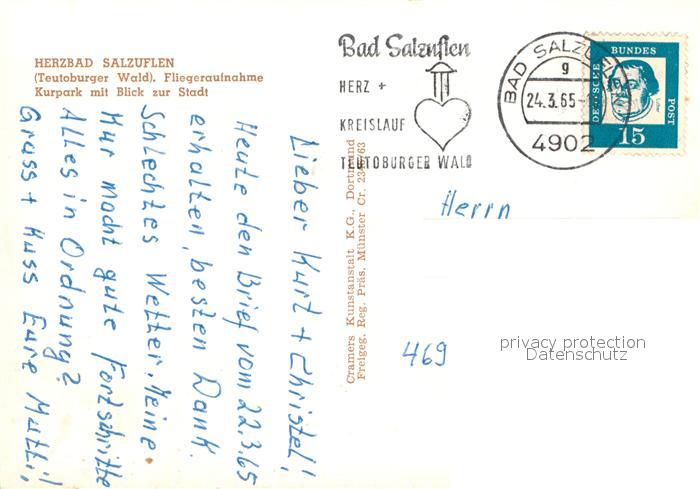 HERZBAD SALZUFLEN
(Teutoburger Wald). Fliegeraufnahme
Kurpark mit Blick zur Stadt
Bad Salzuflen
HERZ +
KREISLAUF
TEUTOBURGER WALD
BAD SALZUFLEN
g
24.3.65-
4902
DEUTSCHE
BUNDES
POST
15
Lieber Kurt + Christel!
Heute den Brief vom 22.3.65
erhalten, besten Dank.
Schlechtes Wetter. Meine
Kur macht gute Fortschritte
Alles in Ordnung?
Gruss + Kuss Eure Mutti!
Cramers Kunstanstalt K.G., Dortmund
Freigeg. Reg. Präs. Münster Cr.
Herrn
469
privacy protection
Datenschutz